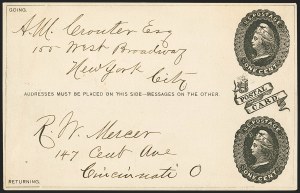 GOING.
A.M. Crouter Esq
100 West Broadway
New York City
ADDRESSES MUST BE PLACED ON THIS SIDE—MESSAGES ON THE OTHER.
R. W. Mercer
147 Cent Ave
Cincinnati O
RETURNING.
U.S. POSTAGE
ONE CENT
POSTAL
CARD
U.S. POSTAGE
ONE CENT